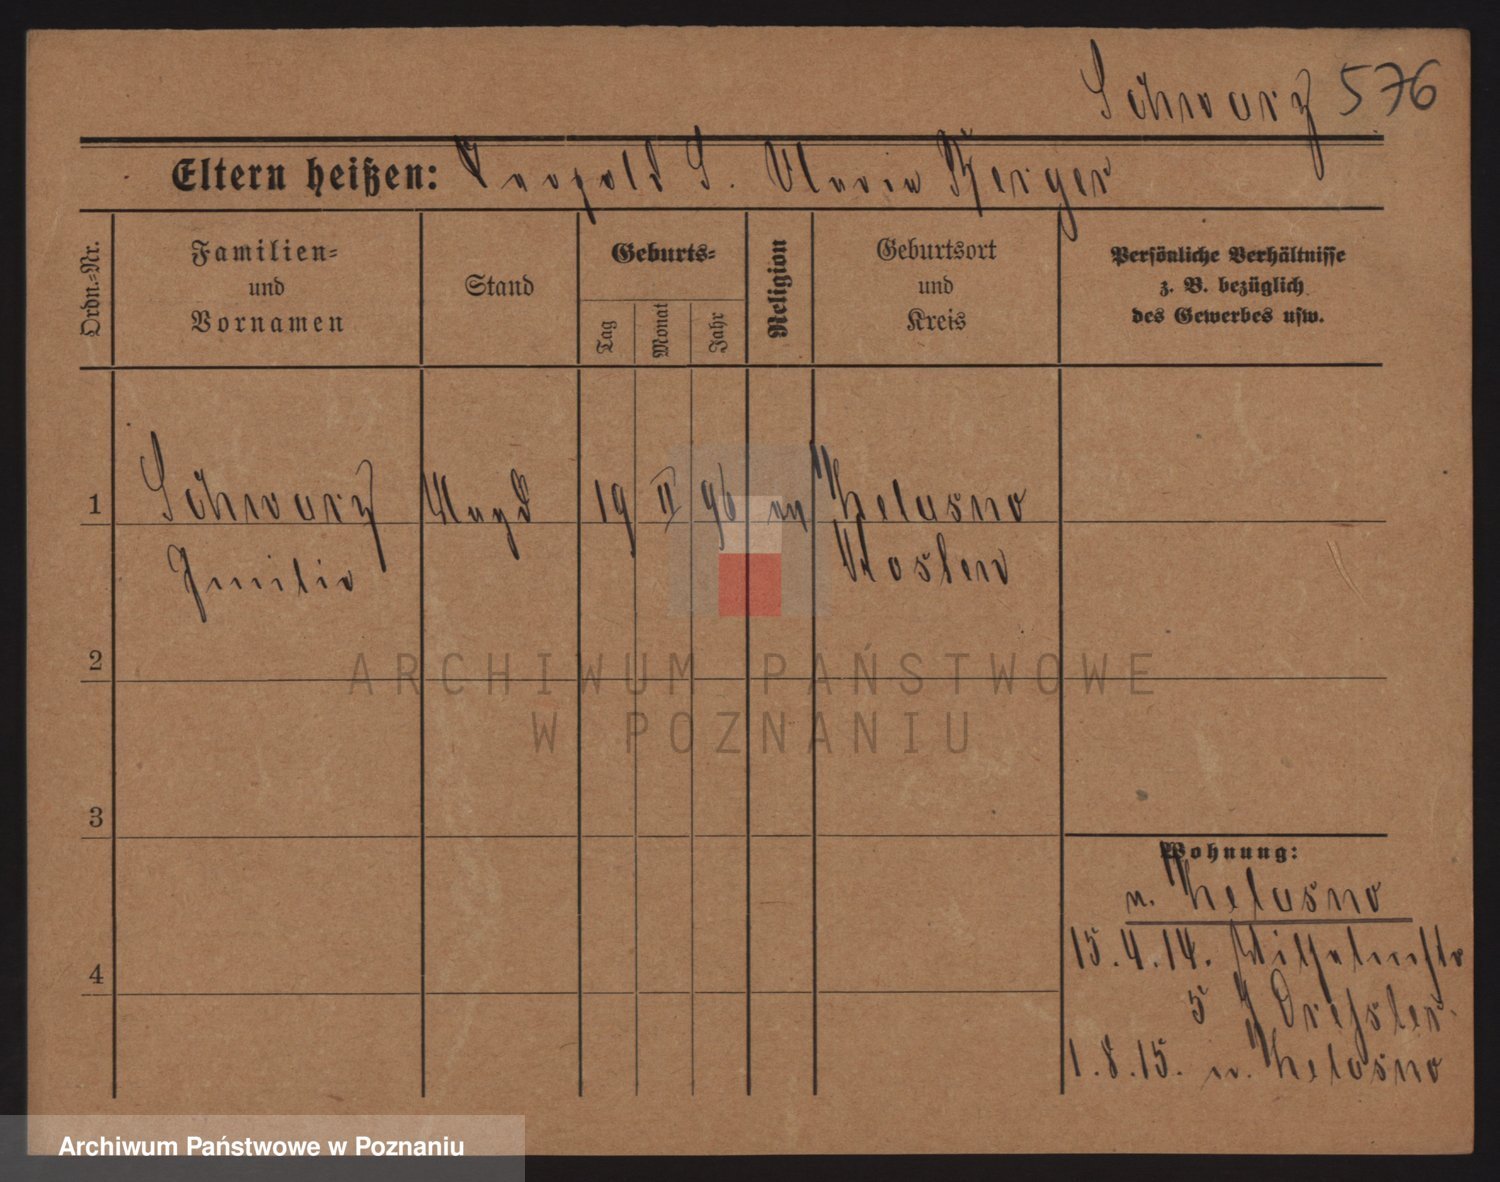 Schwarz 576
Eltern heißen: Leopold S. Maria Berger
Ordn.=Nr.
Familien=
und
Vornamen
Stand
Geburts=
Tag
Monat
Jahr
Religion
Geburtsort
und
Kreis
Persönliche Verhältnisse
z. B. bezüglich
des Gewerbes usw.
1 Schwarz Magd 19 II 96
Emilie Kosten
2
3
4
Wohnung:
15.4.14. Wilhelmstr
5 Dressler
1.8.15.
ARCHIWUM PAŃSTWOWE
W POZNANIU
Archiwum Państwowe w Poznaniu